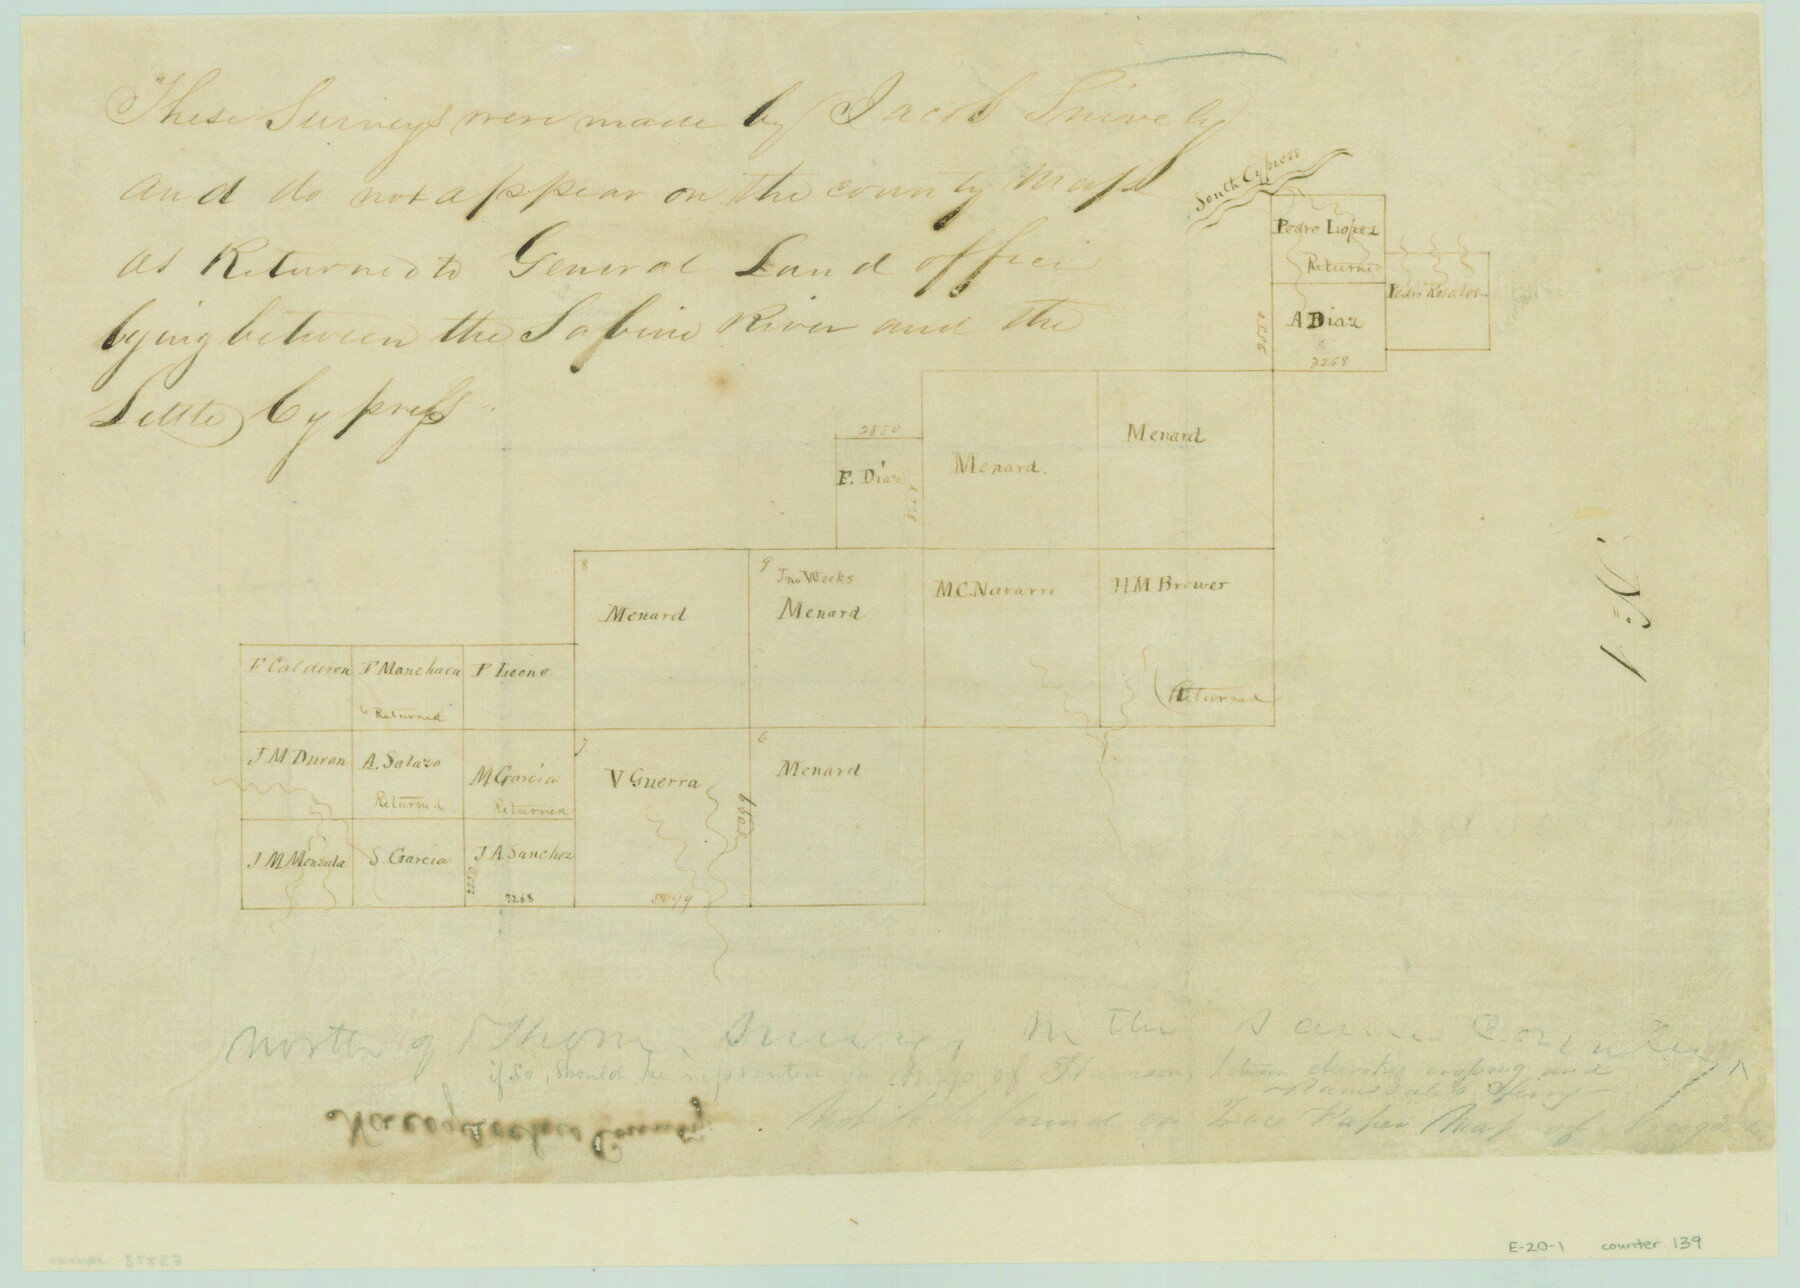 These Surveys were made by Jacob Snively
and do not appear on the county Maps
as Returned to General Land office
lying between the Sabine River and the
Little Cypress
South Cypress
Pedro Lopez
Returned
Pedro Rosales
A Diaz
3268
2550
F. Diaz
Menard.
Menard
8
Menard
9
Jno Weeks
Menard
M.C. Navarro
H M Brewer
Returned
F Calderon
F Manchaca
Returned
F Leone
J M Duran
A. Salazo
Returned
M Garcia
Returned
7
V Guerra
5099
5099
6
Menard
J M Monsula
S. Garcia
J A Sanchez
2550
3268
North of Thorn. Survey, in the same County
if so, should be represented on Map of Thomson, between cherokee crossing and
Ramsdale's ferry
Not to be found on Lace Paper Map of
Nacogdoches County
E-20-1
counter 139